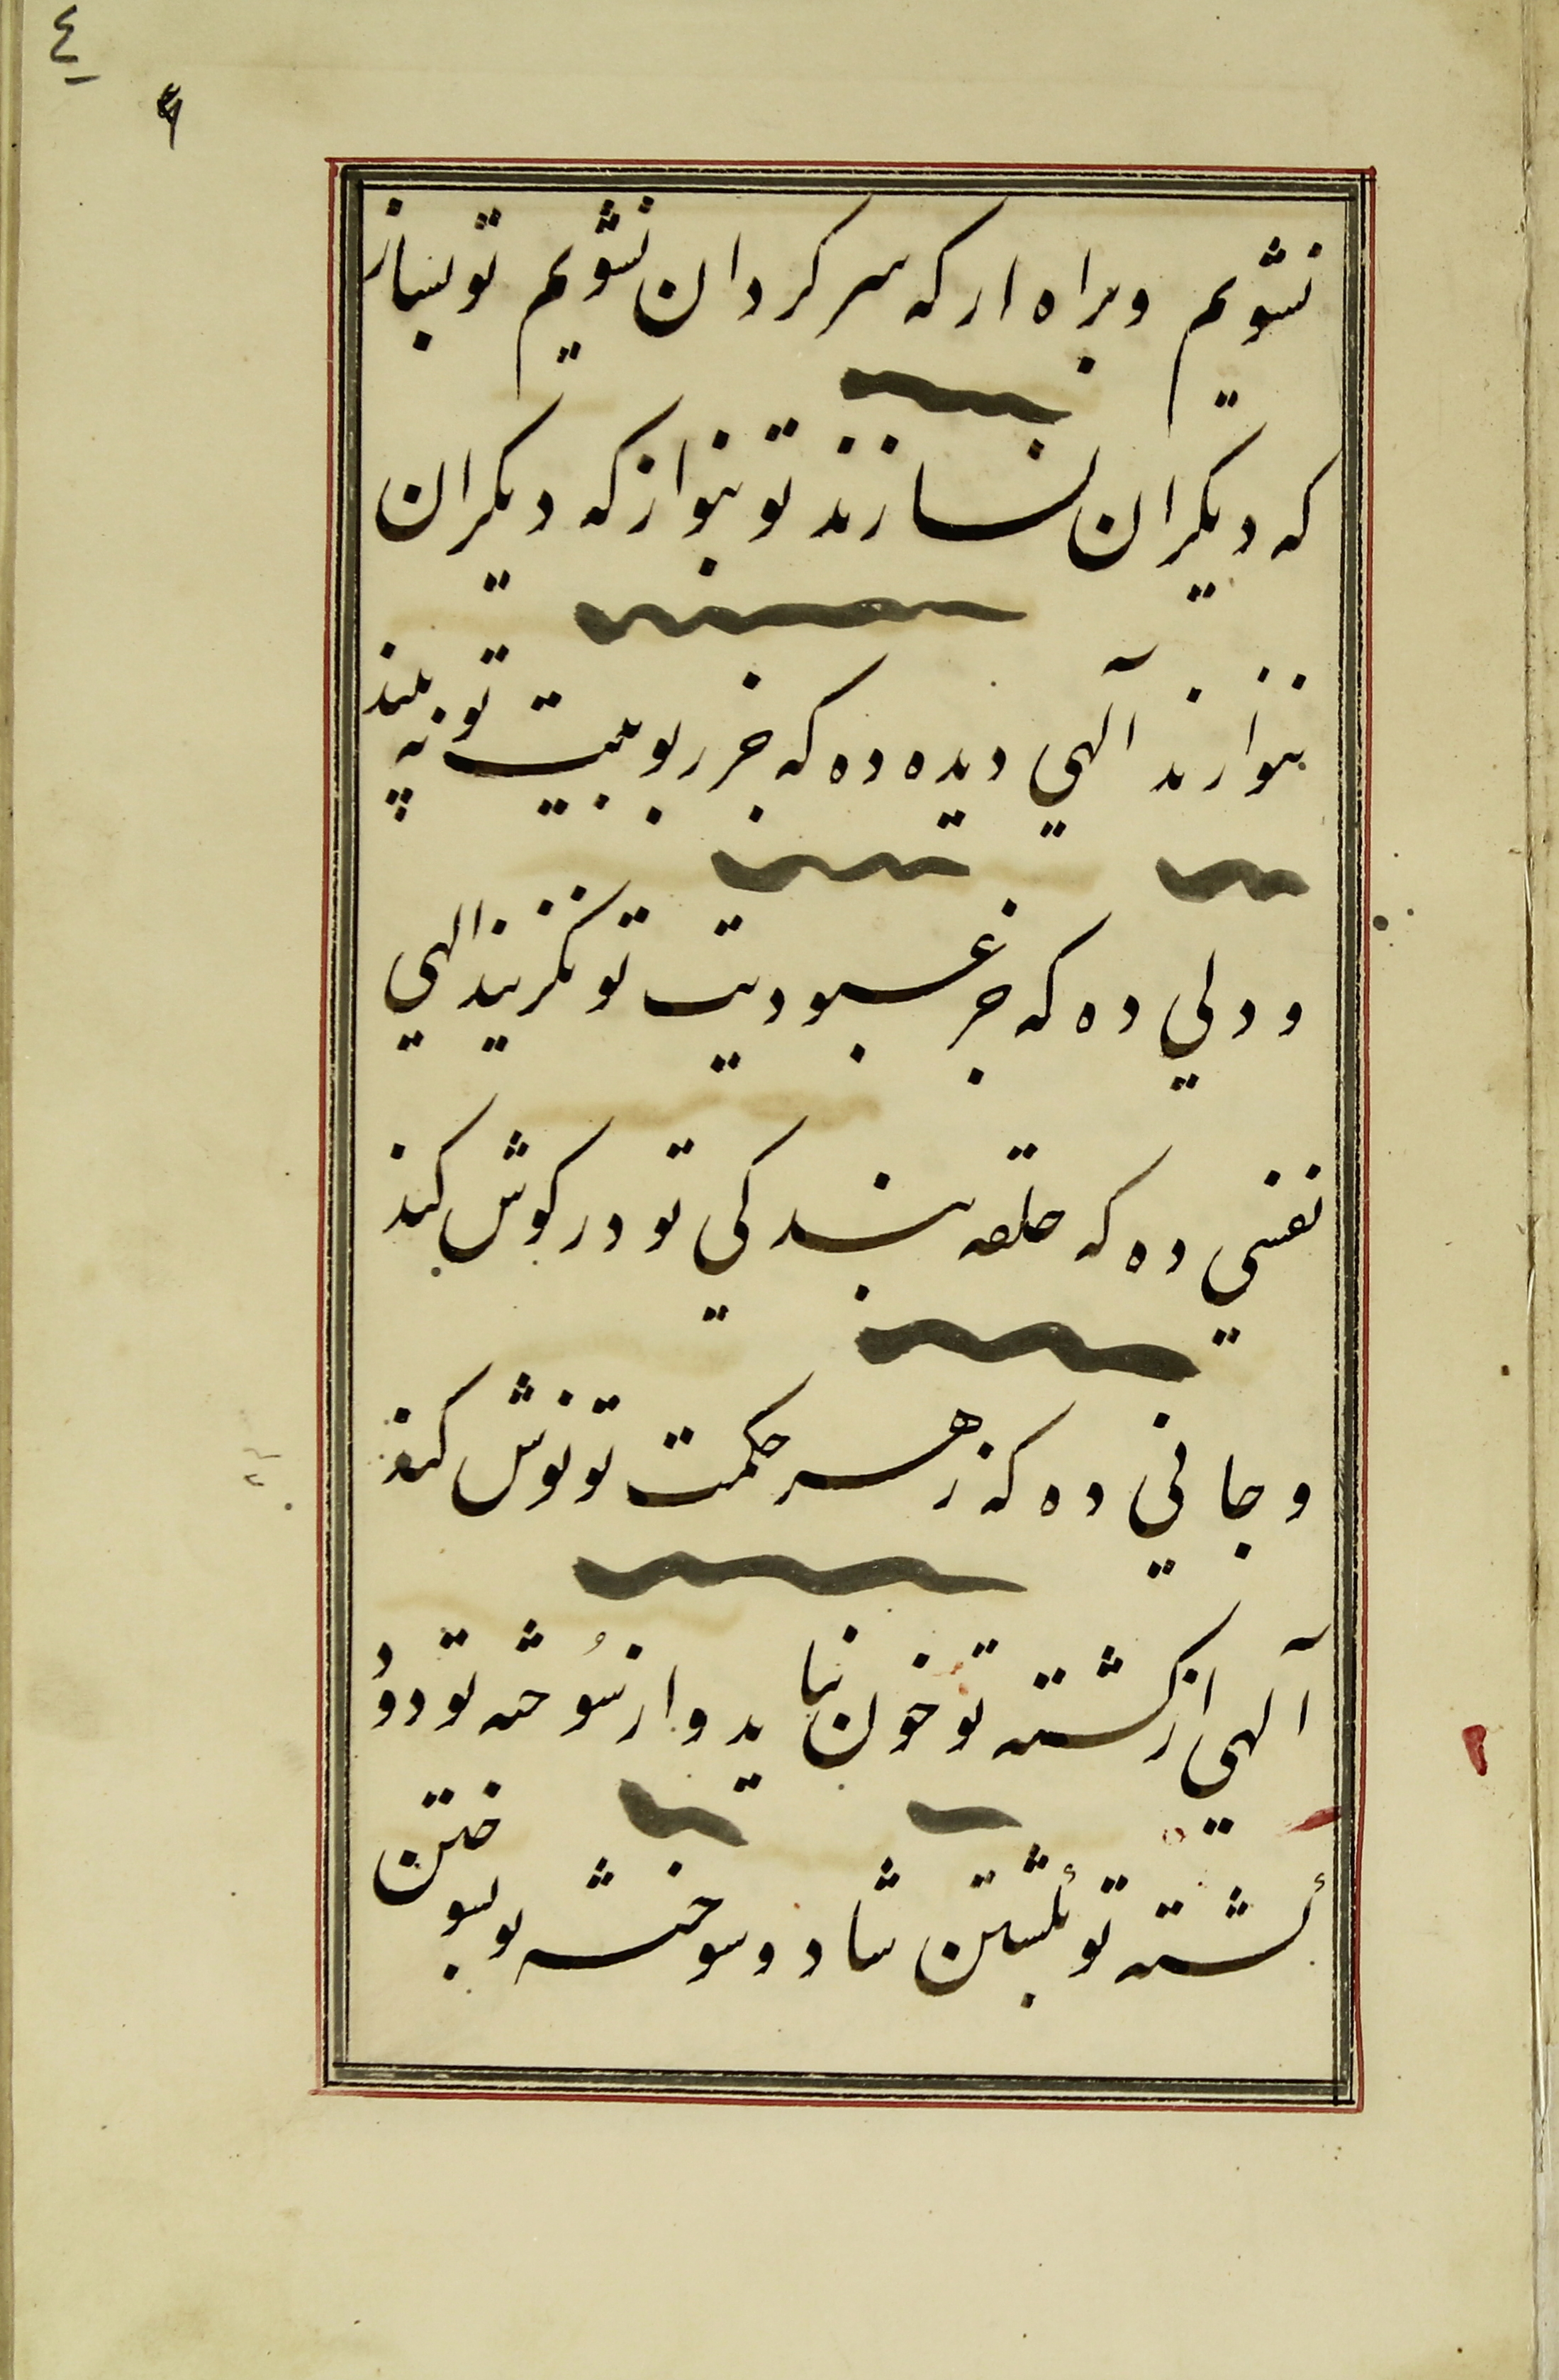 ٤
نشویم وبراه ار که سرکردان نشویم تو بساز
که دیکران نسازند تو بنواز که دیکران
ننوازند آلهي دیده ده که جز ربوبیت تو نه بیند
ودلي ده که جز عبودیت تو نکزیند الهي
نفسي ده که حلقه بندکي تو در کوش کند
وجاني ده که زهر حکمت تو نوش کند
آلهي از کشته تو خون نیاید واز سوخته تو دود
کشته تو بکشتن شاد وسوخته تو بسوختن